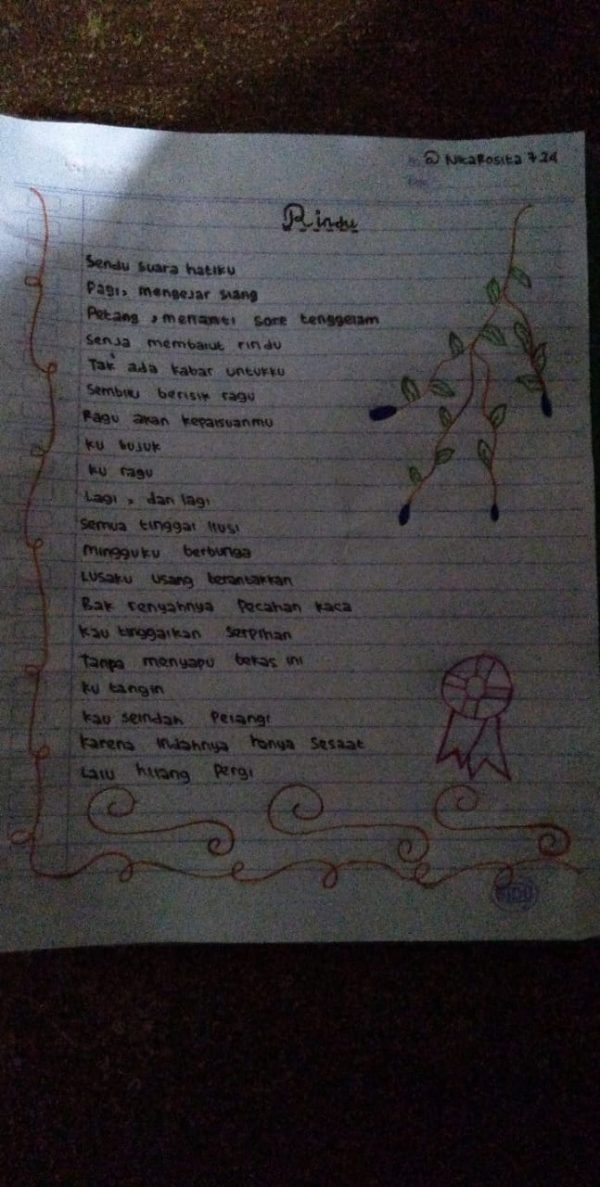 @ NikaRosita 724
Rindu
Sendu suara hatiku
Pagi, mengejar siang
Petang, menanti sore tenggelam
Senja membalut rindu
Tak ada kabar untukku
Sembilu berisik ragu
Ragu akan kepalsuanmu
ku bujuk
ku ragu
Lagi, dan lagi
Semua tinggal ilusi
Mingguku berbunga
Lusaku usang berantakkan
Bak renyahnya pecahan kaca
Kau tinggalkan serpihan
Tanpa menyapu bekas ini
ku tangin
kau seindah Pelangi
karena indahnya hanya sesaat
Lalu hilang pergi